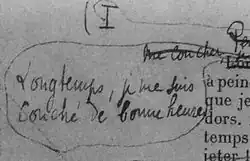 I
Au coucher
Longtemps, je me suis
Couché de bonne heure
à pein
que je
dors.
temps
jeter l